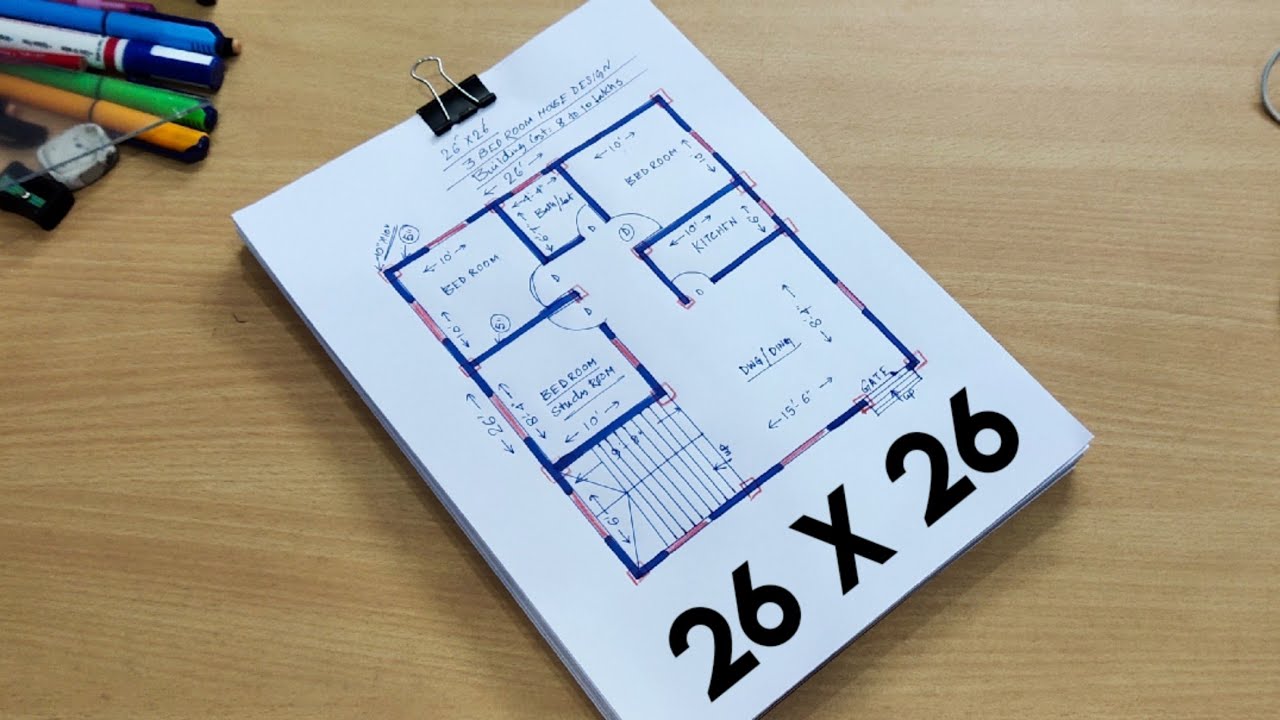 26' X 26'
3 BED ROOM HOUSE DESIGN
Building Cost: 8 to 10 Lakhs
26'
10'
BEDROOM
10'
4'-4"
Bath/
6'
D
D
10'
KITCHEN
6'
D
10" X 10"
5"
10'
BEDROOM
10'
D
5"
BEDROOM
Study ROOM
8'-4"
10'
26'
6'
up
8'-4"
DWG/DING
15'-6"
GATE
up
26 X 26